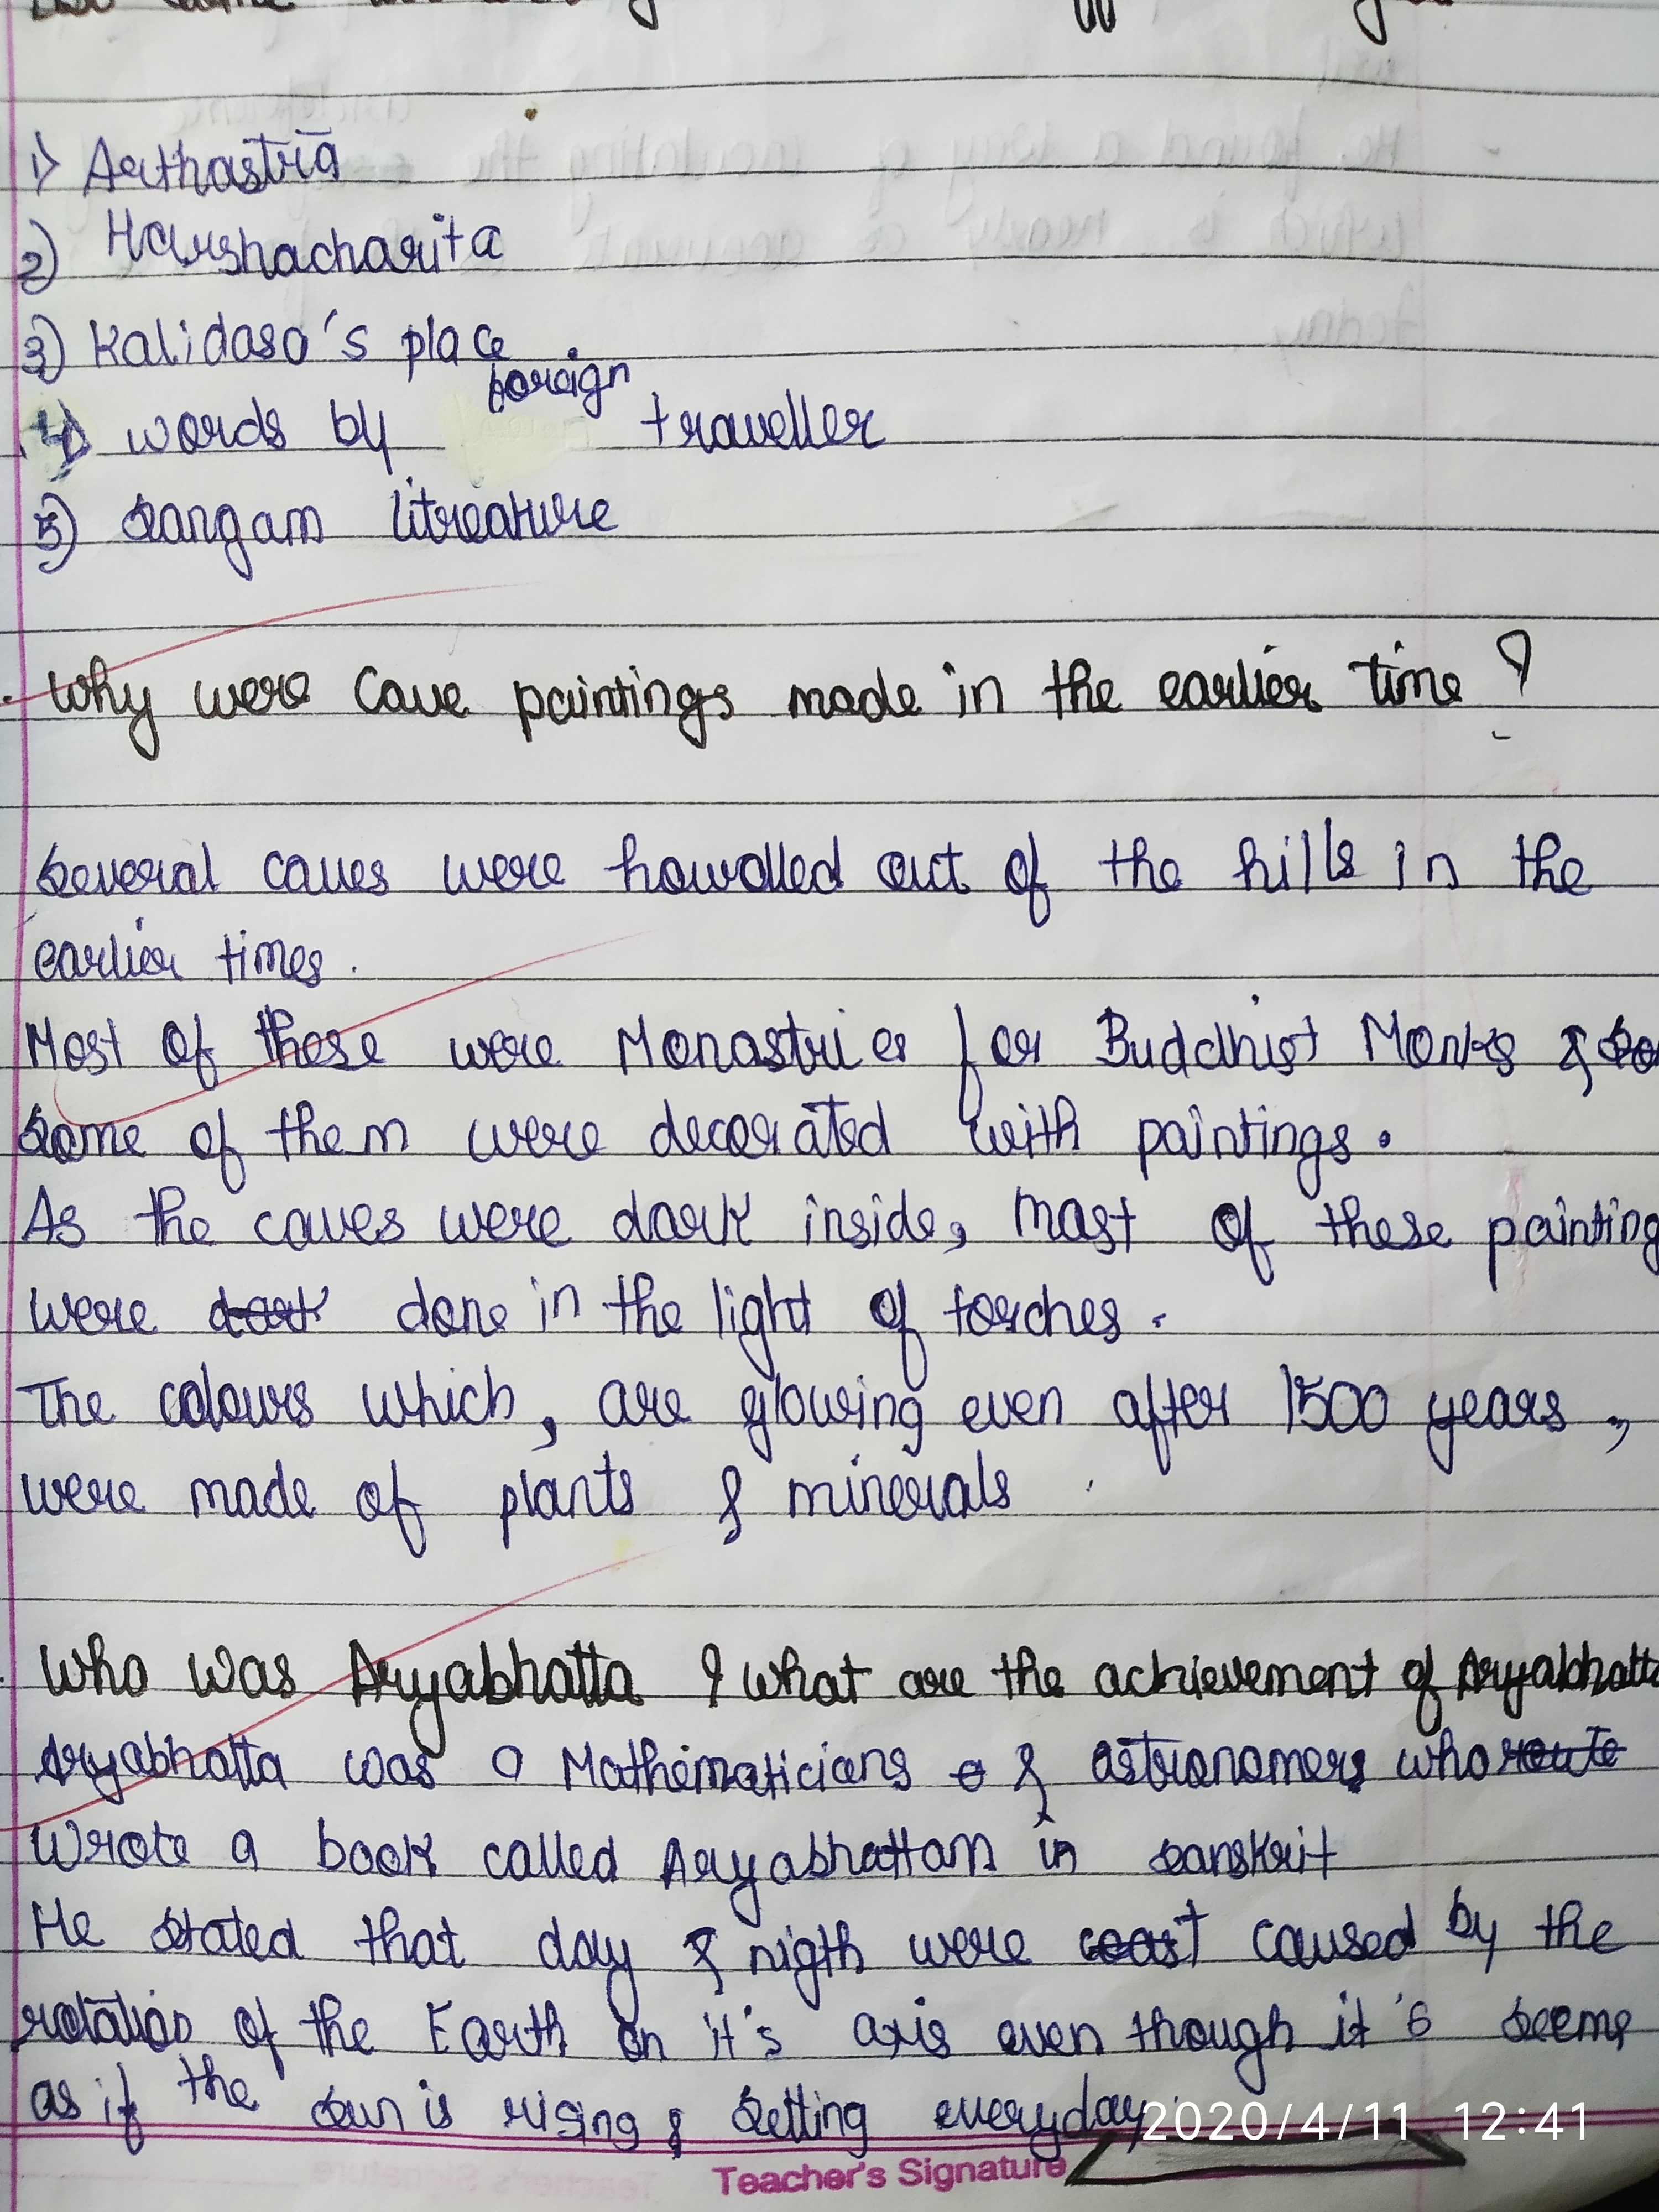 1) Arthastria
2) Harshacharita
3) Kalidasa's place
foreign
4) words by traveller
5) Sangam litreature
Why were Cave paintings made in the earlier time ?
Several caves were howolled out of the hills in the
earlier times.
Most of these were Monastries for Buddhist Monks &
Some of them were decorated with paintings.
As the caves were dark inside, most of these painting
were done in the light of torches.
The colours which, are glowing even after 1500 years,
were made of plants & minerals
Who was Aryabhatta ? what are the achievement of Aryabhatta
Aryabhatta was a Mathematicians & astronomers who
Wrote a book called Aryabhattam in sanskrit
He stated that day & nigth were caused by the
rotation of the Earth on it's axis even though it's seems
as if the sun is rising & setting everyday
2020/4/11 12:41
Teacher's Signature